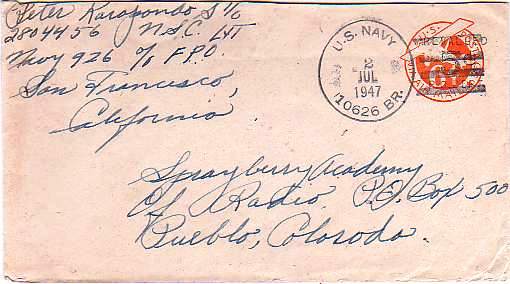 Peter Karapondo S 1/c
2804456 N.S.C. LHT
Navy 926 c/o F.P.O.
San Francisco,
California
U.S. NAVY
2
JUL
1947
10626 BR.
REVALUED
5¢
U.S. POSTAGE
6c
AIR MAIL
Sprayberry Academy
of Radio, P.O. Box 500
Pueblo, Colorodo.